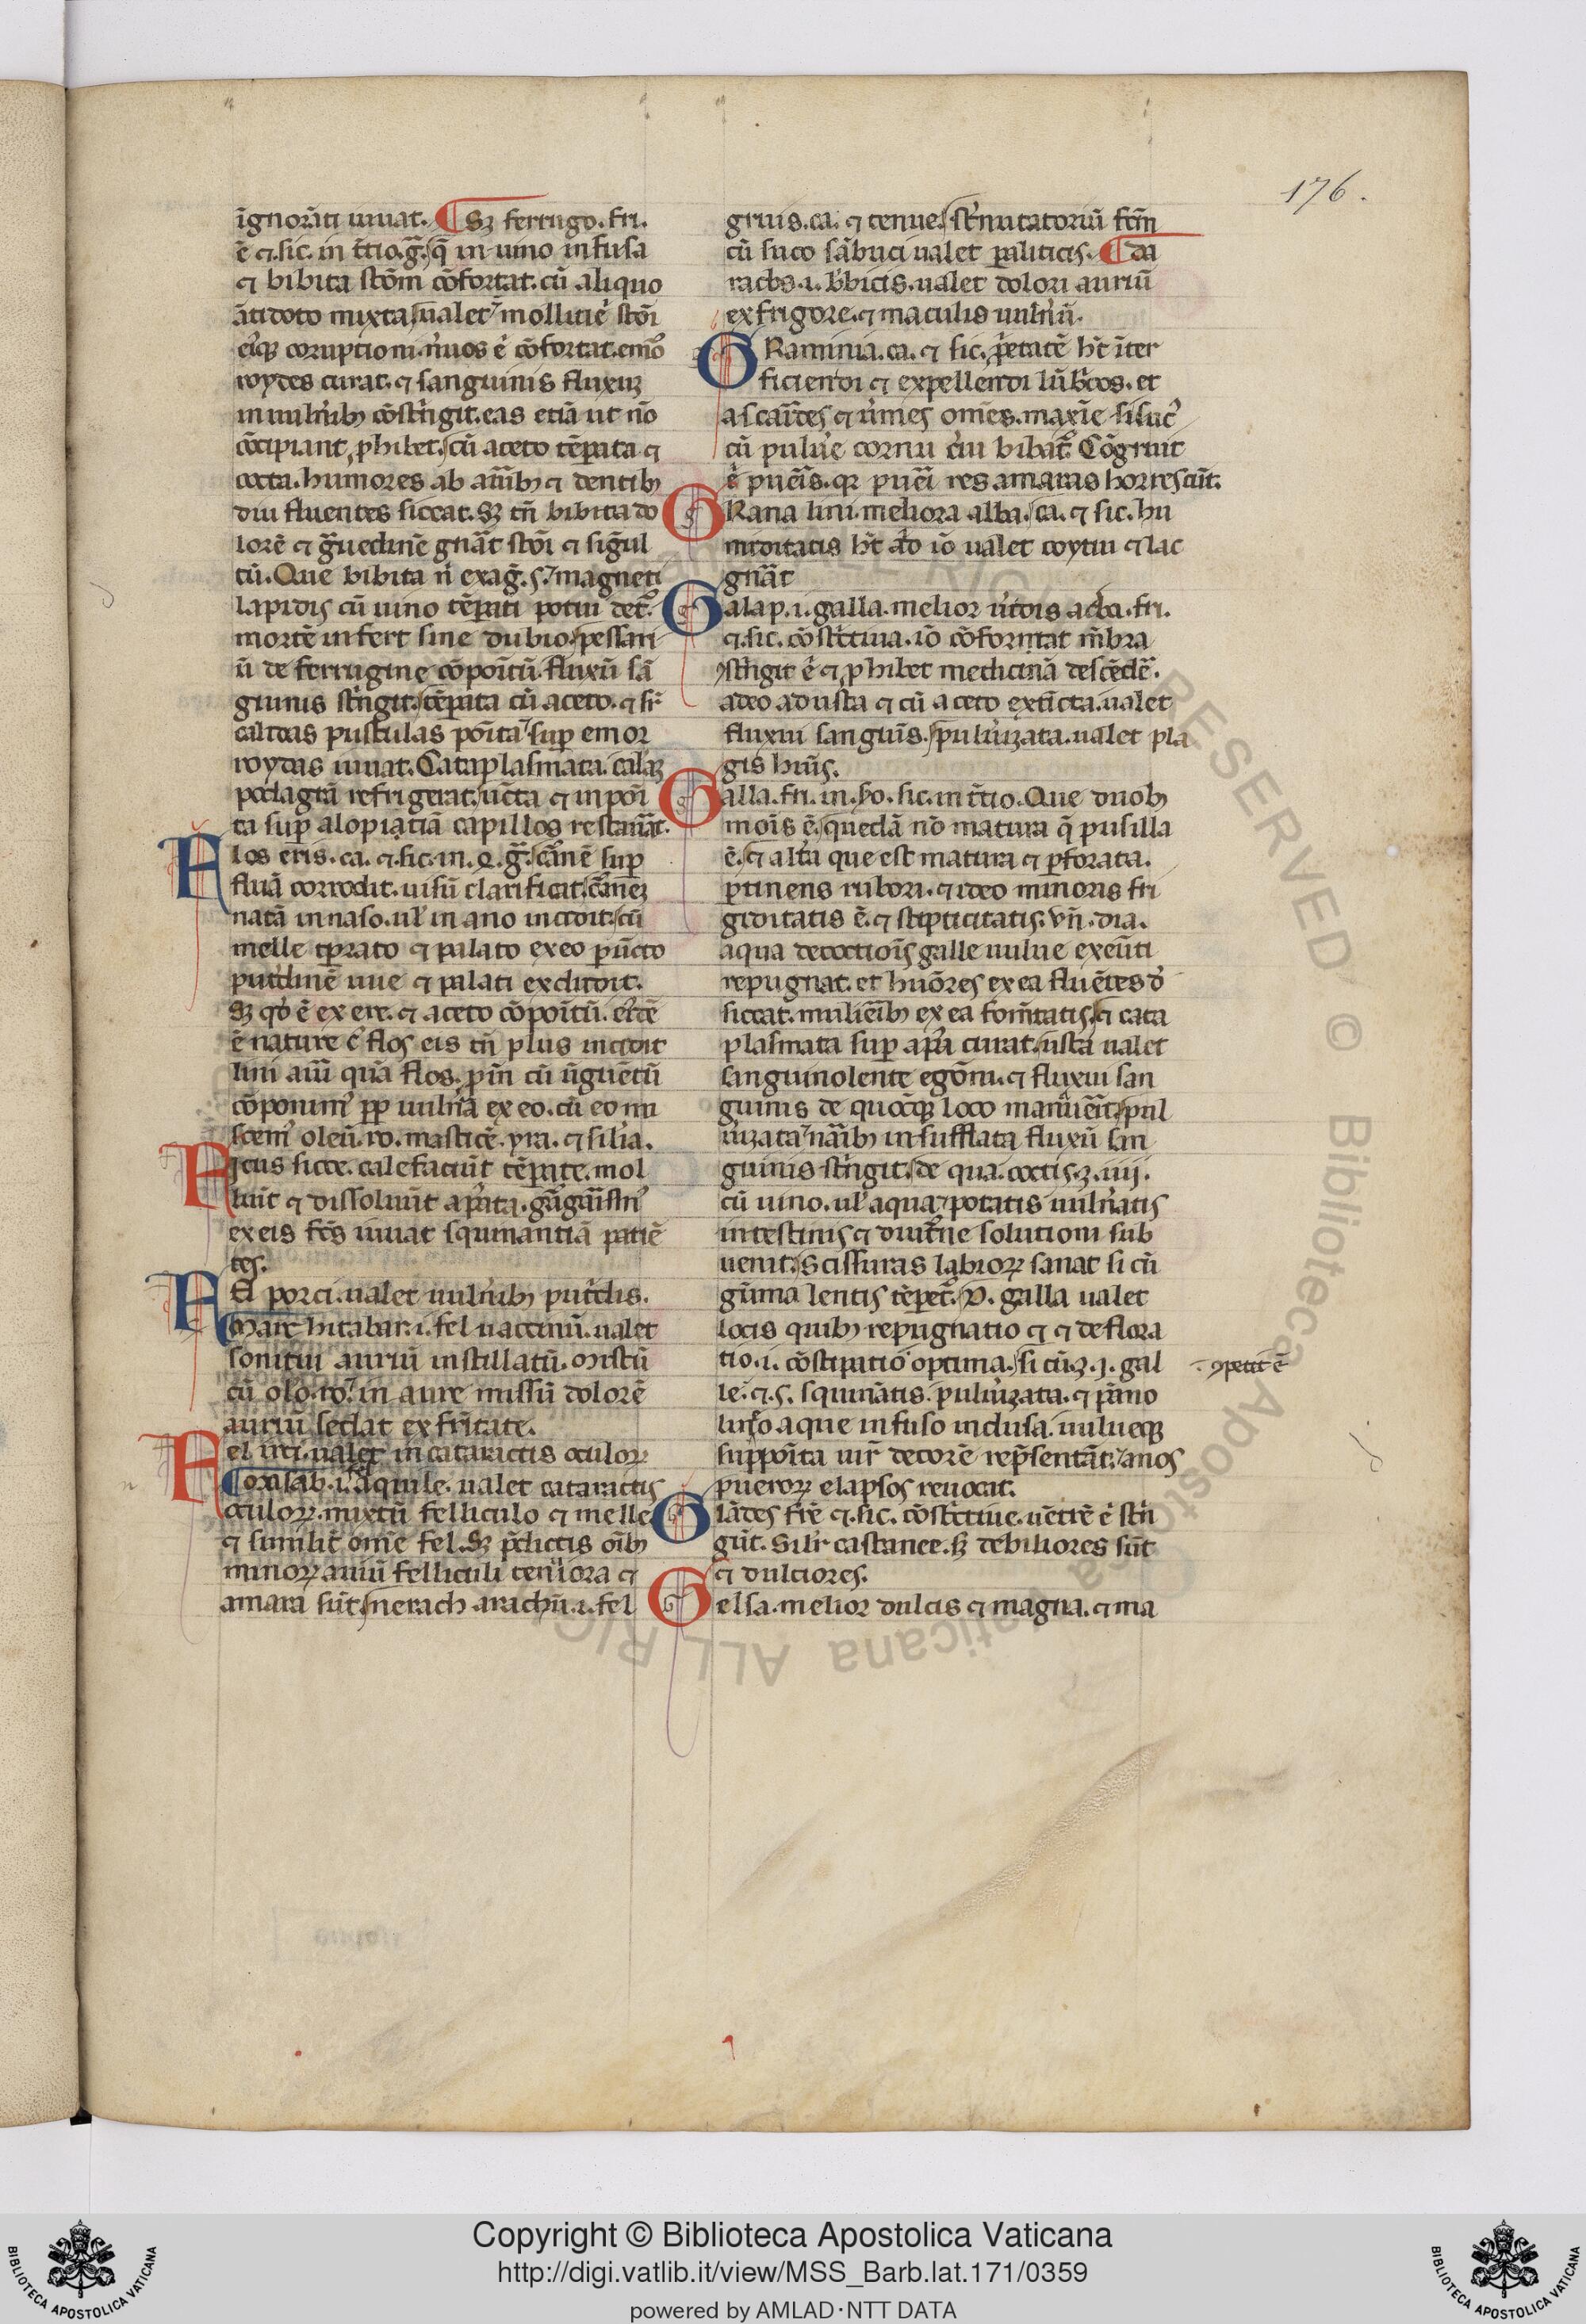 176.
ĩgnorãti iuuat. ¶ Sꝫ ferrugo. fri.
ẽ ⁊ sic. in t̃cio. g̃. q̃ in uino infusa
⁊ bibita stõm cõfortat. cũ aliquo
ãtidoto mixta ualet mollitiẽ stõi
eiꝰqꝫ coruptioni. n̾uos ẽ cõfortat. emo
roydes curat. ⁊ sanguinis fluxuꝫ
in uuln̾ibꝫ cõstr̃igit. eas etiã ut nõ
cõcipiant ꝓhibet. cũ aceto tẽꝑata ⁊
cocta. humores ab aurĩbꝫ ⁊ dentibꝫ
diu fluentes siccat. Sꝫ tñ bibita do
lorẽ ⁊ g̃uedinẽ gnãt stõi ⁊ sigl̃
tũ. Que bibita n̾ exag̃. ⁊ magneti
lapidis cũ uino tẽꝑati potui det̾
mortẽ infert sine dubio. pessari
ũ de ferrugine cõpoĩtũ fluxũ sã
guinis str̃igit. tẽꝑata cũ aceto. ⁊ sr̃
calidas pustulas poĩta suꝑ emor
roydas iuuat. Cataplasmata calaꝫ
podagrã refrigerat. uĩcta ⁊ inpoĩ
ta suꝑ alopiatiã capillos restaurãt.
Flos eris. ca. ⁊ sic. in. q. g̃. carnẽ suꝑ
fluã corrodit. uisũ clarificat. carneꝫ
natã in naso. ul̾ in ano incidit. cũ
melle tꝑato ⁊ palato ex eo ꝑũcto
putdinẽ uue ⁊ palati excludit.
Sꝫ qd̾ ẽ ex ere. ⁊ aceto cõpoĩtũ. eidẽ
ẽ nature c̾ flos eis tñ plus incidit
lini aũ qua flos. ꝑĩn cũ ũguẽtũ
cõponim̾ ꝓp uuln̾a ex eo. cũ eo mi
scem̾ oleũ. ro. masticẽ. yra. ⁊ silĩa.
Ficus sicce. calefaciũt tẽꝑate. mol
liũt ⁊ dissoluũt apᷓta. gargarism̾
ex eis fc̃s iuuat squinantiã patiẽ
tes.
Fel porci. ualet uuln̾ibꝫ putdis.
¶ Marc hitabar. i. fel uaccinũ. ualet
sonitui auriũ instillatũ. mistũ
cũ oło. ro. in aure missũ dolorẽ
auriũ sedat ex fritate.
Fel irci. ualet in cataractis oculoꝝ
¶ orasab. i. aquile. ualet cataractis
oculoꝝ. mixtũ felliculo ⁊ melle
⁊ similit̾ om̃e fel. Sꝫ p̃dictis oĩbꝫ
minoꝝ auiũ felliculi teniora ⁊
amara sũt. merach arachũ. i. fel
gruis. ca. ⁊ tenue. str̃nutatoriũ fc̃m
cũ suco sãbuci ualet paliticis. ¶ Da
racbs. i. bbicis. ualet dolori auriũ
ex frigore. ⁊ maculis uuln̾ũ.
Graminia. ca. ⁊ sic. ꝓp̃etatẽ h̃t ĩter
ficiendi ⁊ expellendi lũbꝛicos. et
ascarĩdes ⁊ u̾mes om̃es. maxĩe si suc̾
cũ pulu̾e cornu c̾ui bibat̾. Cõgruit
ẽ pueĩs. qꝛ pueĩ res amaras horrescũt.
Grana lini. meliora alba. ca. ⁊ sic. hu
miditatis h̃t ad̾o iõ ualet coytui ⁊ lac
gnãt
Galap. i. galla. melior uĩdis ac̾ba. fri.
⁊ sic. cõstrictiua. iõ cõfortat m̃bra
str̃igit ẽ ⁊ ꝓhibet medicinã descẽdẽ̾.
adeo adusta ⁊ cũ aceto extĩcta. ualet
fluxui sanguĩs. pulũizata. ualet pla
gis huiꝰ.
Galla. fri. in. ẜo. sic. in t̃cio. Que duobꝫ
moĩs ẽ. quedã nõ matura q̃ pusilla
ẽ. ⁊ alt̾a que est matura ⁊ ꝑforata.
ꝑtinens rubori. ⁊ ideo minoris fri
giditatis ẽ. ⁊ stipticitatis. vñ. dia.
aqua decoctiõis galle uulue exeũti
repugnat. et huõres ex ea fluẽtes d̾
siccat. muliẽibꝫ ex ea fom̃tatis. ⁊ cata
plasmata suꝑ apᷓa curat. usta ualet
sanguinolente egõni. ⁊ fluxui san
guinis de quocũqꝫ loco manãuerit. pul
u̾izata narĩbꝫ insufflata fluxũ san
guinis str̃igit. de qua. coctis. ʒ. iiij.
cũ uino. ul̾ aqua potatis uuln̾atis
intestinis ⁊ diut̾ne solutioni sub
uenit. Scissuras labioꝝ sanat si cũ
gũma lentis tẽꝑet̾. D. galla ualet
locis quibꝫ repugnatio ⁊ ⁊ deflora
tio. i. cõstipatio optima. si cũ. ʒ. j. gal
le. ⁊ s. squinãtis. pulũizata. ⁊ pãno
lineo aque infuso inclusa. uulueqꝫ
suppoĩta uir̾ decorẽ rep̃sentãt. anos
pueroꝝ elapsos reuocat.
Glãdes frẽ ⁊. sic. cõstrictiue. uẽtrẽ ẽ str̃i
gũt. Silr̾ castanee. sꝫ debiliores sũt
⁊ dulciores.
Gelsa. melior dulcis ⁊ magna. ⁊ ma
ꝯpetit ẽ
Copyright © Biblioteca Apostolica Vaticana
http://digi.vatlib.it/view/MSS_Barb.lat.171/0359
powered by AMLAD · NTT DATA
BIBLIOTECA APOSTOLICA VATICANA
BIBLIOTECA APOSTOLICA VATICANA